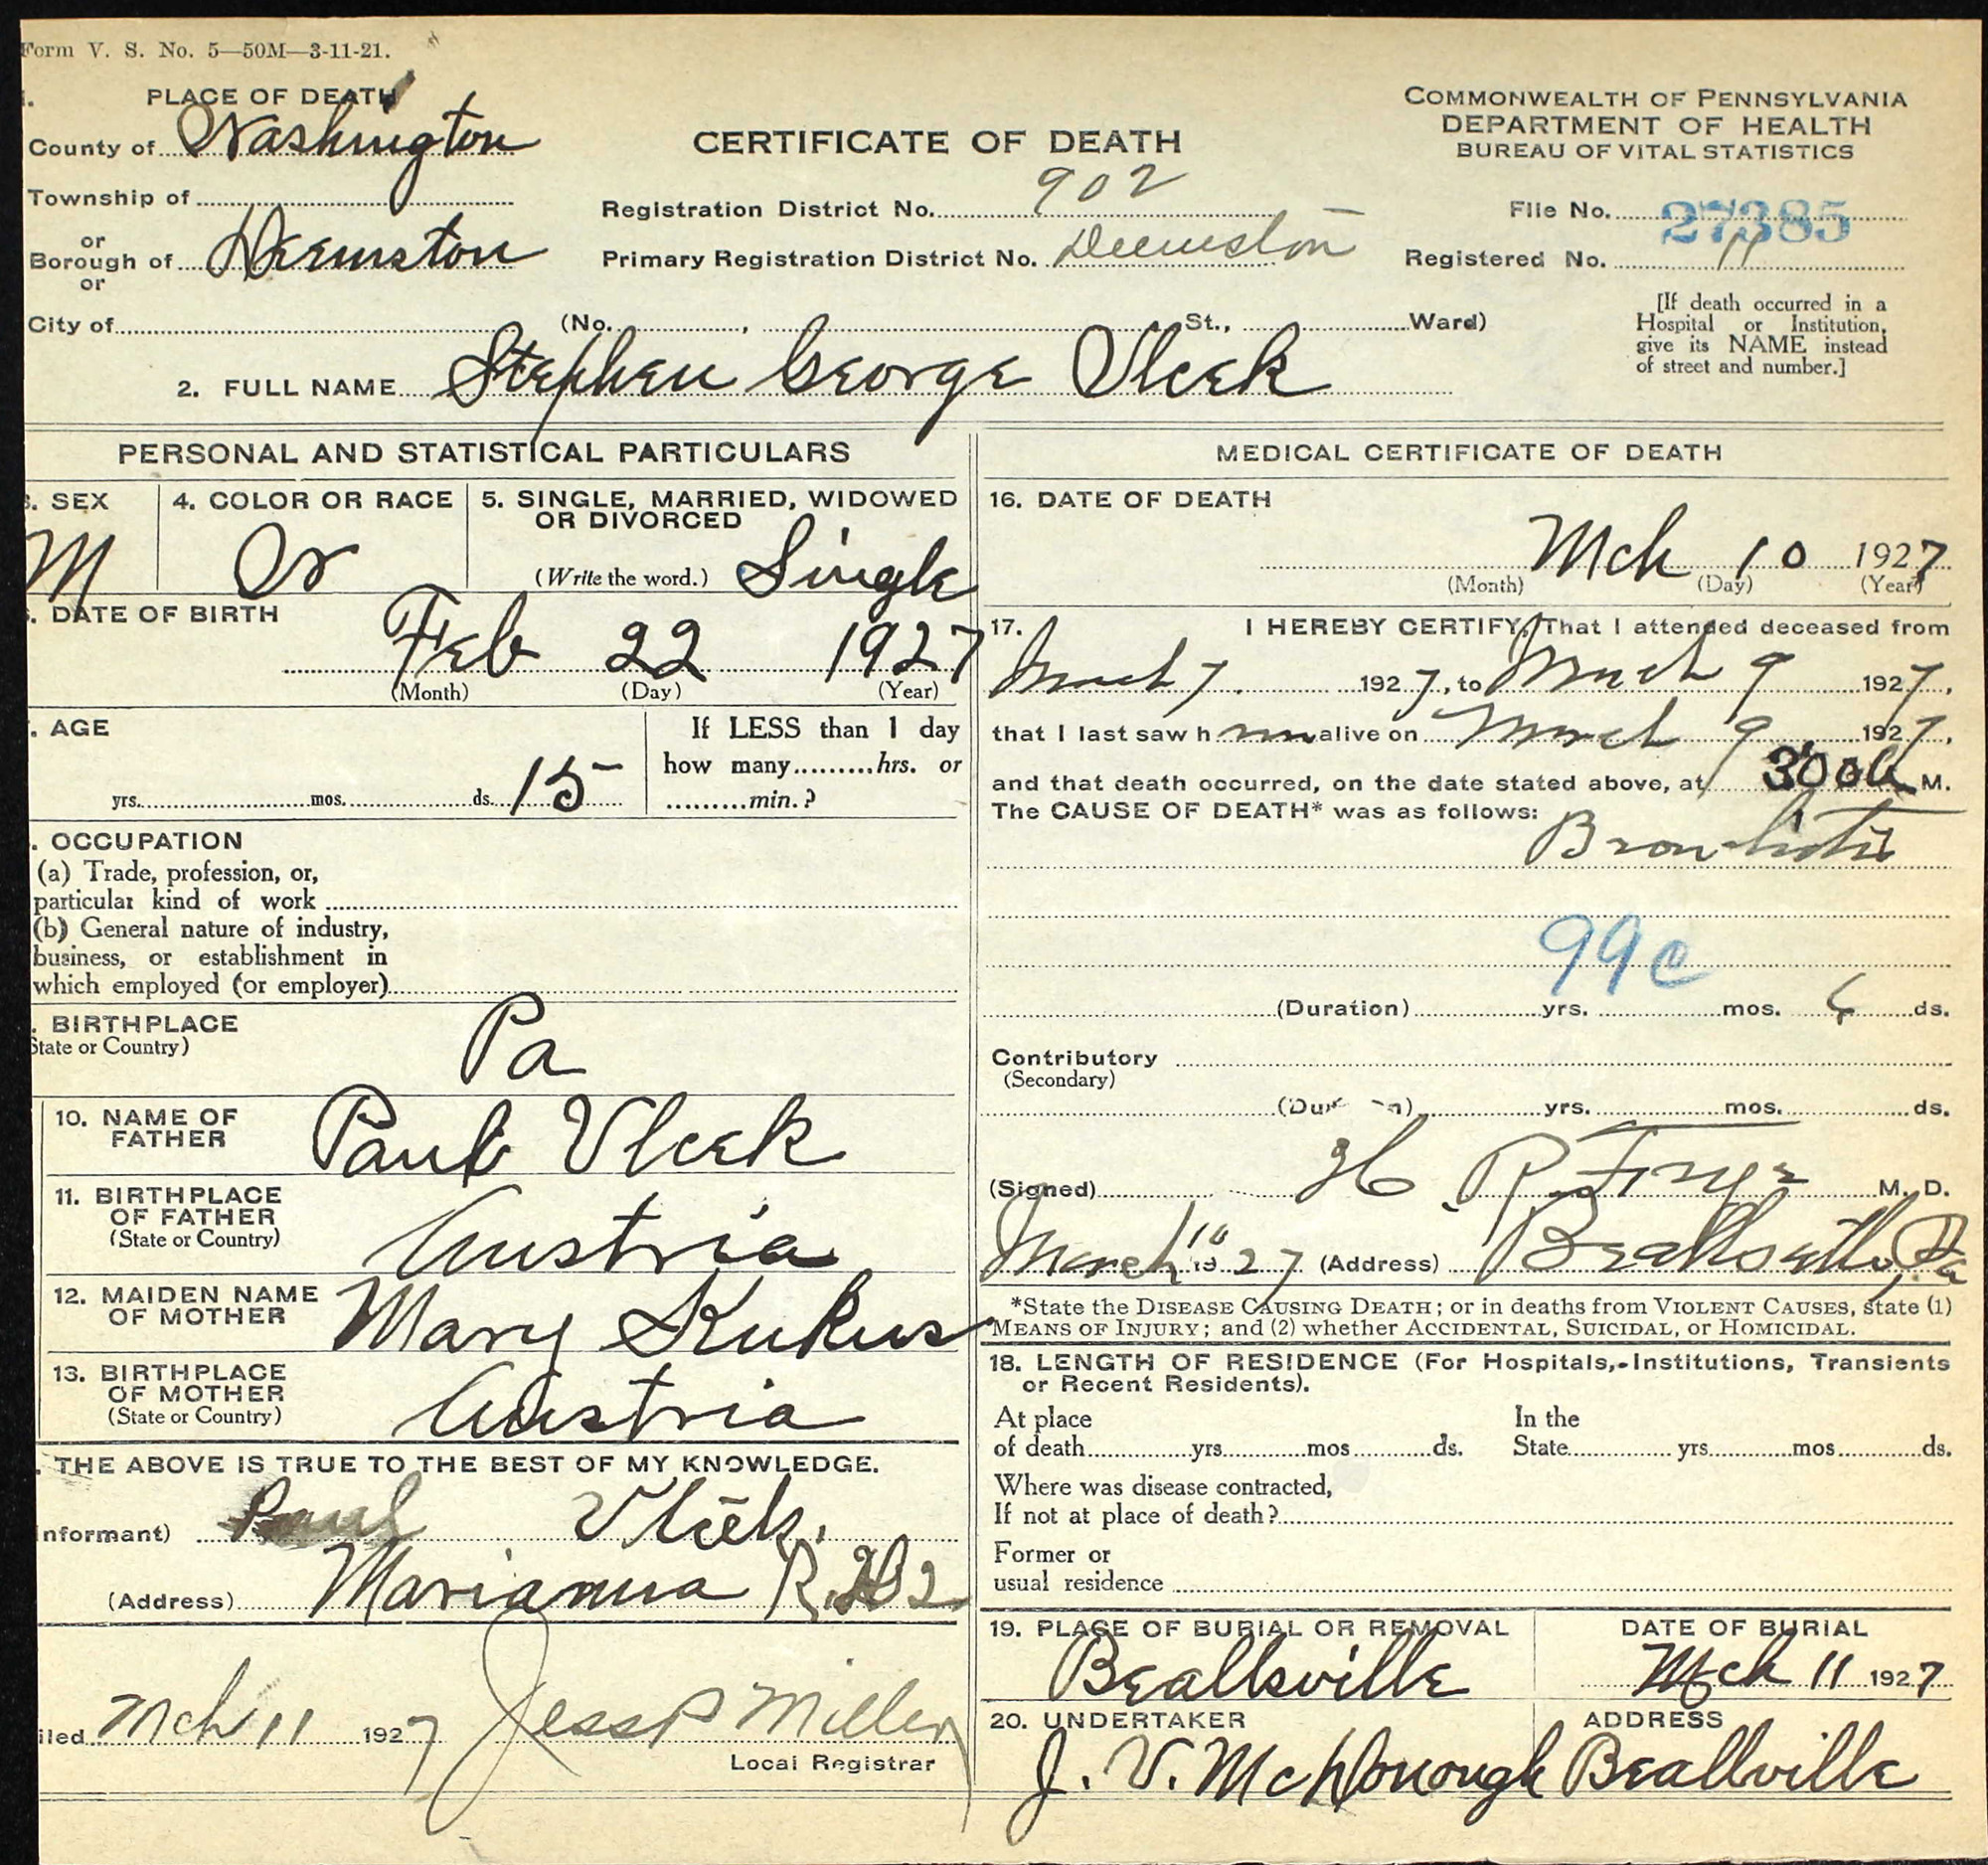 Form V. S. No. 5—50M—3-11-21.
PLACE OF DEATH
County of Washington
Township of
or
Borough of Deemston
or
City of (No. , St., Ward)
CERTIFICATE OF DEATH
Registration District No. 902
Primary Registration District No. Deemston
COMMONWEALTH OF PENNSYLVANIA
DEPARTMENT OF HEALTH
BUREAU OF VITAL STATISTICS
File No. 27385
Registered No. 11
[If death occurred in a
Hospital or Institution,
give its NAME instead
of street and number.]
2. FULL NAME Stephen George Vlcek
PERSONAL AND STATISTICAL PARTICULARS
. SEX
M
4. COLOR OR RACE
5. SINGLE, MARRIED, WIDOWED
OR DIVORCED
(Write the word.) Single
. DATE OF BIRTH
Feb 22 1927
(Month) (Day) (Year)
. AGE
yrs. mos. ds. 15
If LESS than 1 day
how many hrs. or
min.?
. OCCUPATION
(a) Trade, profession, or,
particular kind of work
(b) General nature of industry,
business, or establishment in
which employed (or employer)
. BIRTHPLACE
State or Country)
Pa
10. NAME OF
FATHER
Paul Vlcek
11. BIRTHPLACE
OF FATHER
(State or Country)
Austria
12. MAIDEN NAME
OF MOTHER
Mary Kukus
13. BIRTHPLACE
OF MOTHER
(State or Country)
Austria
. THE ABOVE IS TRUE TO THE BEST OF MY KNOWLEDGE.
nformant) Paul Vlcek,
(Address) Marianna R. 2
iled Mch 11 1927 Jess P Miller
Local Registrar
MEDICAL CERTIFICATE OF DEATH
16. DATE OF DEATH
Mch 10 1927
(Month) (Day) (Year)
17. I HEREBY CERTIFY, That I attended deceased from
March 7 1927, to March 9 1927,
that I last saw h im alive on March 9 1927,
and that death occurred, on the date stated above, at 3 00 a M.
The CAUSE OF DEATH* was as follows:
Bronchitis
99c
(Duration) yrs. mos. ds.
Contributory
(Secondary)
(Duration) yrs. mos. ds.
(Signed) H R Frye M. D.
March 10 1927 (Address) Beallsville, Pa
*State the DISEASE CAUSING DEATH; or in deaths from VIOLENT CAUSES, state (1)
MEANS OF INJURY; and (2) whether ACCIDENTAL, SUICIDAL, or HOMICIDAL.
18. LENGTH OF RESIDENCE (For Hospitals, Institutions, Transients
or Recent Residents).
At place In the
of death yrs. mos. ds. State yrs. mos. ds.
Where was disease contracted,
If not at place of death?
Former or
usual residence
19. PLACE OF BURIAL OR REMOVAL
Beallsville
DATE OF BURIAL
Mch 11 1927
20. UNDERTAKER
J. V. McDonough
ADDRESS
Beallville